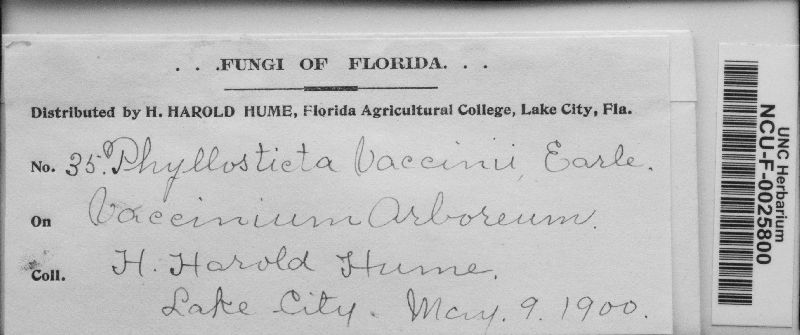 . . .FUNGI OF FLORIDA. . .
Distributed by H. HAROLD HUME, Florida Agricultural College, Lake City, Fla.
No. 35. Phyllosticta Vaccinii, Earle.
On Vaccinium Arboreum.
Coll. H. Harold Hume.
Lake City. May. 9. 1900.
UNC Herbarium
NCU-F-0025800